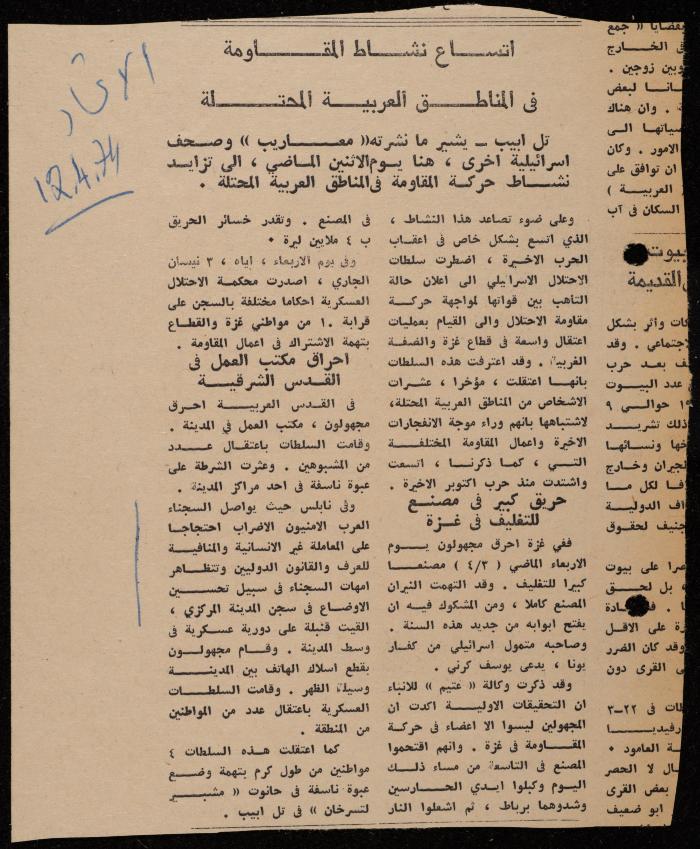 الاتحاد
12.4.74
اتساع نشاط المقاومة
فى المناطق العربية المحتلة
تل ابيب ــ يشير ما نشرته « معاريب » وصحف
اسرائيلية اخرى ، هنا يوم الاثنين الماضي ، الى تزايد
نشاط حركة المقاومة فى المناطق العربية المحتلة .
وعلى ضوء تصاعد هذا النشاط ،
الذي اتسع بشكل خاص فى اعقاب
الحرب الاخيرة ، اضطرت سلطات
الاحتلال الاسرائيلي الى اعلان حالة
التأهب بين قواتها لمواجهة حركة
مقاومة الاحتلال والى القيام بعمليات
اعتقال واسعة في قطاع غزة والضفة
الغربية . وقد اعترفت هذه السلطات
بانها اعتقلت ، مؤخرا ، عشرات
الاشخاص من المناطق العربية المحتلة،
لاشتباهها بانهم وراء موجة الانفجارات
الاخيرة واعمال المقاومة المختلفة
التي ، كما ذكرنا ، اتسعت
واشتدت منذ حرب اكتوبر الاخيرة .
حريق كبير فى مصنع
للتغليف فى غزة
ففي غزة احرق مجهولون يوم
الاربعاء الماضي ( ٤/٣ ) مصنعا
كبيرا للتغليف . وقد التهمت النيران
المصنع كاملا ، ومن المشكوك فيه ان
يفتح ابوابه من جديد هذه السنة .
وصاحبه متمول اسرائيلي من كفار
يونا ، يدعى يوسف كرني .
وقد ذكرت وكالة « عتيم » للانباء
ان التحقيقات الاولية اكدت ان
المجهولين ليسوا الا اعضاء فى حركة
المقاومة فى غزة . وانهم اقتحموا
المصنع فى التاسعة من مساء ذلك
اليوم وكبلوا ايدي الحارسين
وشدوهما برباط ، ثم اشعلوا النار
فى المصنع . وتقدر خسائر الحريق
ب ٤ ملايين ليرة .
وفى يوم الاربعاء ، اياه ، ٣ نيسان
الجاري ، اصدرت محكمة الاحتلال
العسكرية احكاما مختلفة بالسجن على
قرابة ١٠ من مواطني غزة والقطاع
بتهمة الاشتراك فى اعمال المقاومة .
احراق مكتب العمل فى
القدس الشرقية
فى القدس العربية احرق
مجهولون ، مكتب العمل في المدينة .
وقامت السلطات باعتقال عدد
من المشبوهين . وعثرت الشرطة على
عبوة ناسفة فى احد مراكز المدينة .
وفى نابلس حيث يواصل السجناء
العرب الامنيون الاضراب احتجاجا
على المعاملة غير الانسانية والمنافية
للعرف والقانون الدوليين وتتظاهر
امهات السجناء فى سبيل تحسين
الاوضاع فى سجن المدينة المركزي ،
القيت قنبلة على دورية عسكرية فى
وسط المدينة . وقام مجهولون
بقطع اسلاك الهاتف بين المدينة
وسيلة الظهر . وقامت السلطات
العسكرية باعتقال عدد من المواطنين
من المنطقة .
كما اعتقلت هذه السلطات ٤
مواطنين من طول كرم بتهمة وضع
عبوة ناسفة فى حانوت « مشبير
لتسرخان » فى تل ابيب .
« جمع
فى الخارج
زوجين .
لبعض
. وان هناك
الى
الامور . وكان
ان توافق على
العربية )
السكان فى آب
بيوت
القديمة
وأثر بشكل
. وقد
بعد حرب
عدد البيوت
حوالي ٩
تشريد
ونسائها
وخارج
لكل ما
الدولية
جنيف لحقوق
على بيوت
، بل لحق
على الاقل
وقد كان الضرر
القرى دون
فى ٢٢ــ٣
العامود .
لا الحصر
بعض القرى
ابو ضعيف